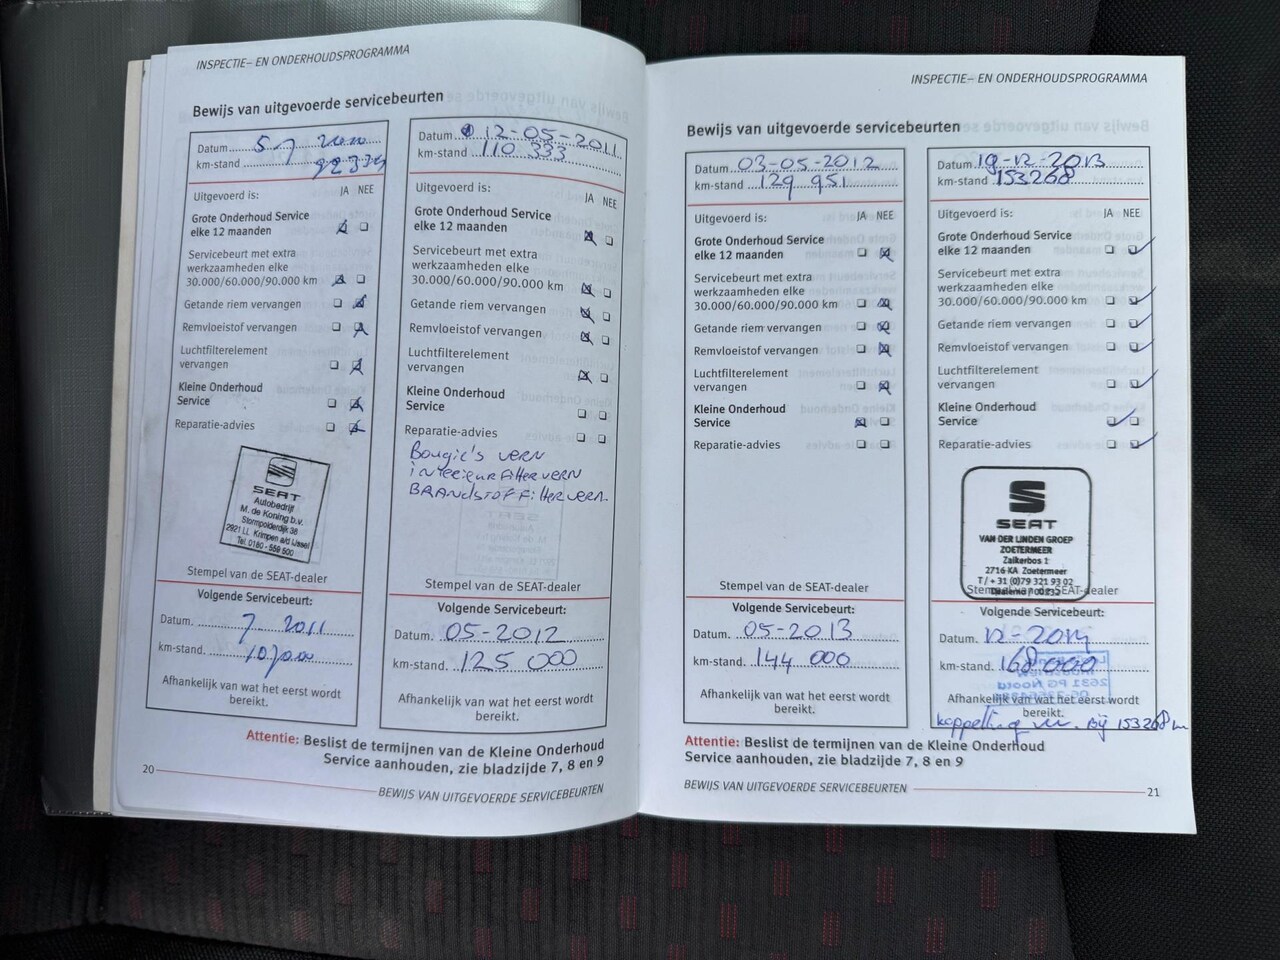 INSPECTIE– EN ONDERHOUDSPROGRAMMA
Bewijs van uitgevoerde servicebeurten
Datum 5 7 2010
km-stand
Uitgevoerd is: JA NEE
Grote Onderhoud Service
elke 12 maanden
Servicebeurt met extra
werkzaamheden elke
30.000/60.000/90.000 km
Getande riem vervangen
Remvloeistof vervangen
Luchtfilterelement
vervangen
Kleine Onderhoud
Service
Reparatie-advies
SEAT
Autobedrijf
M. de Koning b.v.
Stormpolderdijk 36
2921 LL Krimpen a/d IJssel
Tel. 0180 - 559 500
Stempel van de SEAT-dealer
Volgende Servicebeurt:
Datum. 7 2011
km-stand. 107000
Afhankelijk van wat het eerst wordt
bereikt.
Datum 12-05-2011
km-stand 110 333
Uitgevoerd is:
JA NEE
Grote Onderhoud Service
elke 12 maanden
Servicebeurt met extra
werkzaamheden elke
30.000/60.000/90.000 km
Getande riem vervangen
Remvloeistof vervangen
Luchtfilterelement
vervangen
Kleine Onderhoud
Service
Reparatie-advies
Bougie's vern
interieurfilter vern
BRANDSTOFFilter vern.
Stempel van de SEAT-dealer
Volgende Servicebeurt:
Datum. 05-2012
km-stand. 125 000
Afhankelijk van wat het eerst wordt
bereikt.
Attentie: Beslist de termijnen van de Kleine Onderhoud
Service aanhouden, zie bladzijde 7, 8 en 9
20
BEWIJS VAN UITGEVOERDE SERVICEBEURTEN
INSPECTIE– EN ONDERHOUDSPROGRAMMA
Bewijs van uitgevoerde servicebeurten
Datum 03-05-2012
km-stand 129 951
Uitgevoerd is: JA NEE
Grote Onderhoud Service
elke 12 maanden
Servicebeurt met extra
werkzaamheden elke
30.000/60.000/90.000 km
Getande riem vervangen
Remvloeistof vervangen
Luchtfilterelement
vervangen
Kleine Onderhoud
Service
Reparatie-advies
Stempel van de SEAT-dealer
Volgende Servicebeurt:
Datum. 05-2013
km-stand. 144 000
Afhankelijk van wat het eerst wordt
bereikt.
Datum 19-12-2013
km-stand 153268
Uitgevoerd is: JA NEE
Grote Onderhoud Service
elke 12 maanden
Servicebeurt met extra
werkzaamheden elke
30.000/60.000/90.000 km
Getande riem vervangen
Remvloeistof vervangen
Luchtfilterelement
vervangen
Kleine Onderhoud
Service
Reparatie-advies
SEAT
VAN DER LINDEN GROEP
ZOETERMEER
Zalkerbos 1
2716 KA Zoetermeer
T / + 31 (0)79 321 93 02
Stempel van de SEAT-dealer
Volgende Servicebeurt:
Datum. 12-2014
km-stand. 168000
Afhankelijk van wat het eerst wordt
bereikt.
koppeling Bij 153268
Attentie: Beslist de termijnen van de Kleine Onderhoud
Service aanhouden, zie bladzijde 7, 8 en 9
BEWIJS VAN UITGEVOERDE SERVICEBEURTEN
21